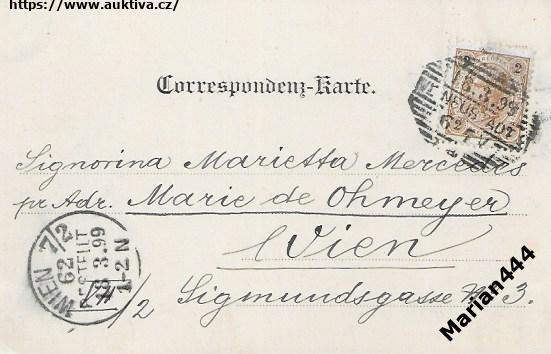 https://www.auktiva.cz/
2 2
Correspondenz-Karte.
13.3.99
NEUSTADT
Signorina Marietta Mercedes
pr Adr. Marie de Ohmeyer
Wien
VII/2 Sigmundsgasse No 3.
WIEN 7/2
62
BESTELLT
13.3.99
1-2N
Marian444